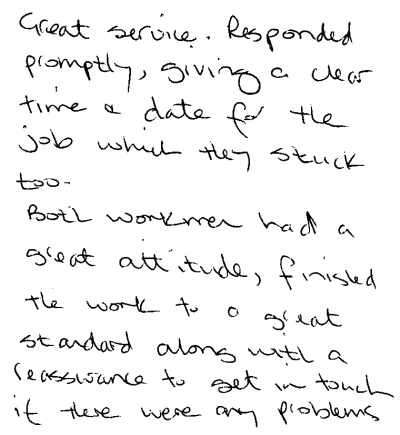 Great service. Responded
promptly, giving a clear
time & date for the
job which they stuck
too.
Both workmen had a
great attitude, finished
the work to a great
standard along with a
reasswance to get in touch
if there were any problems